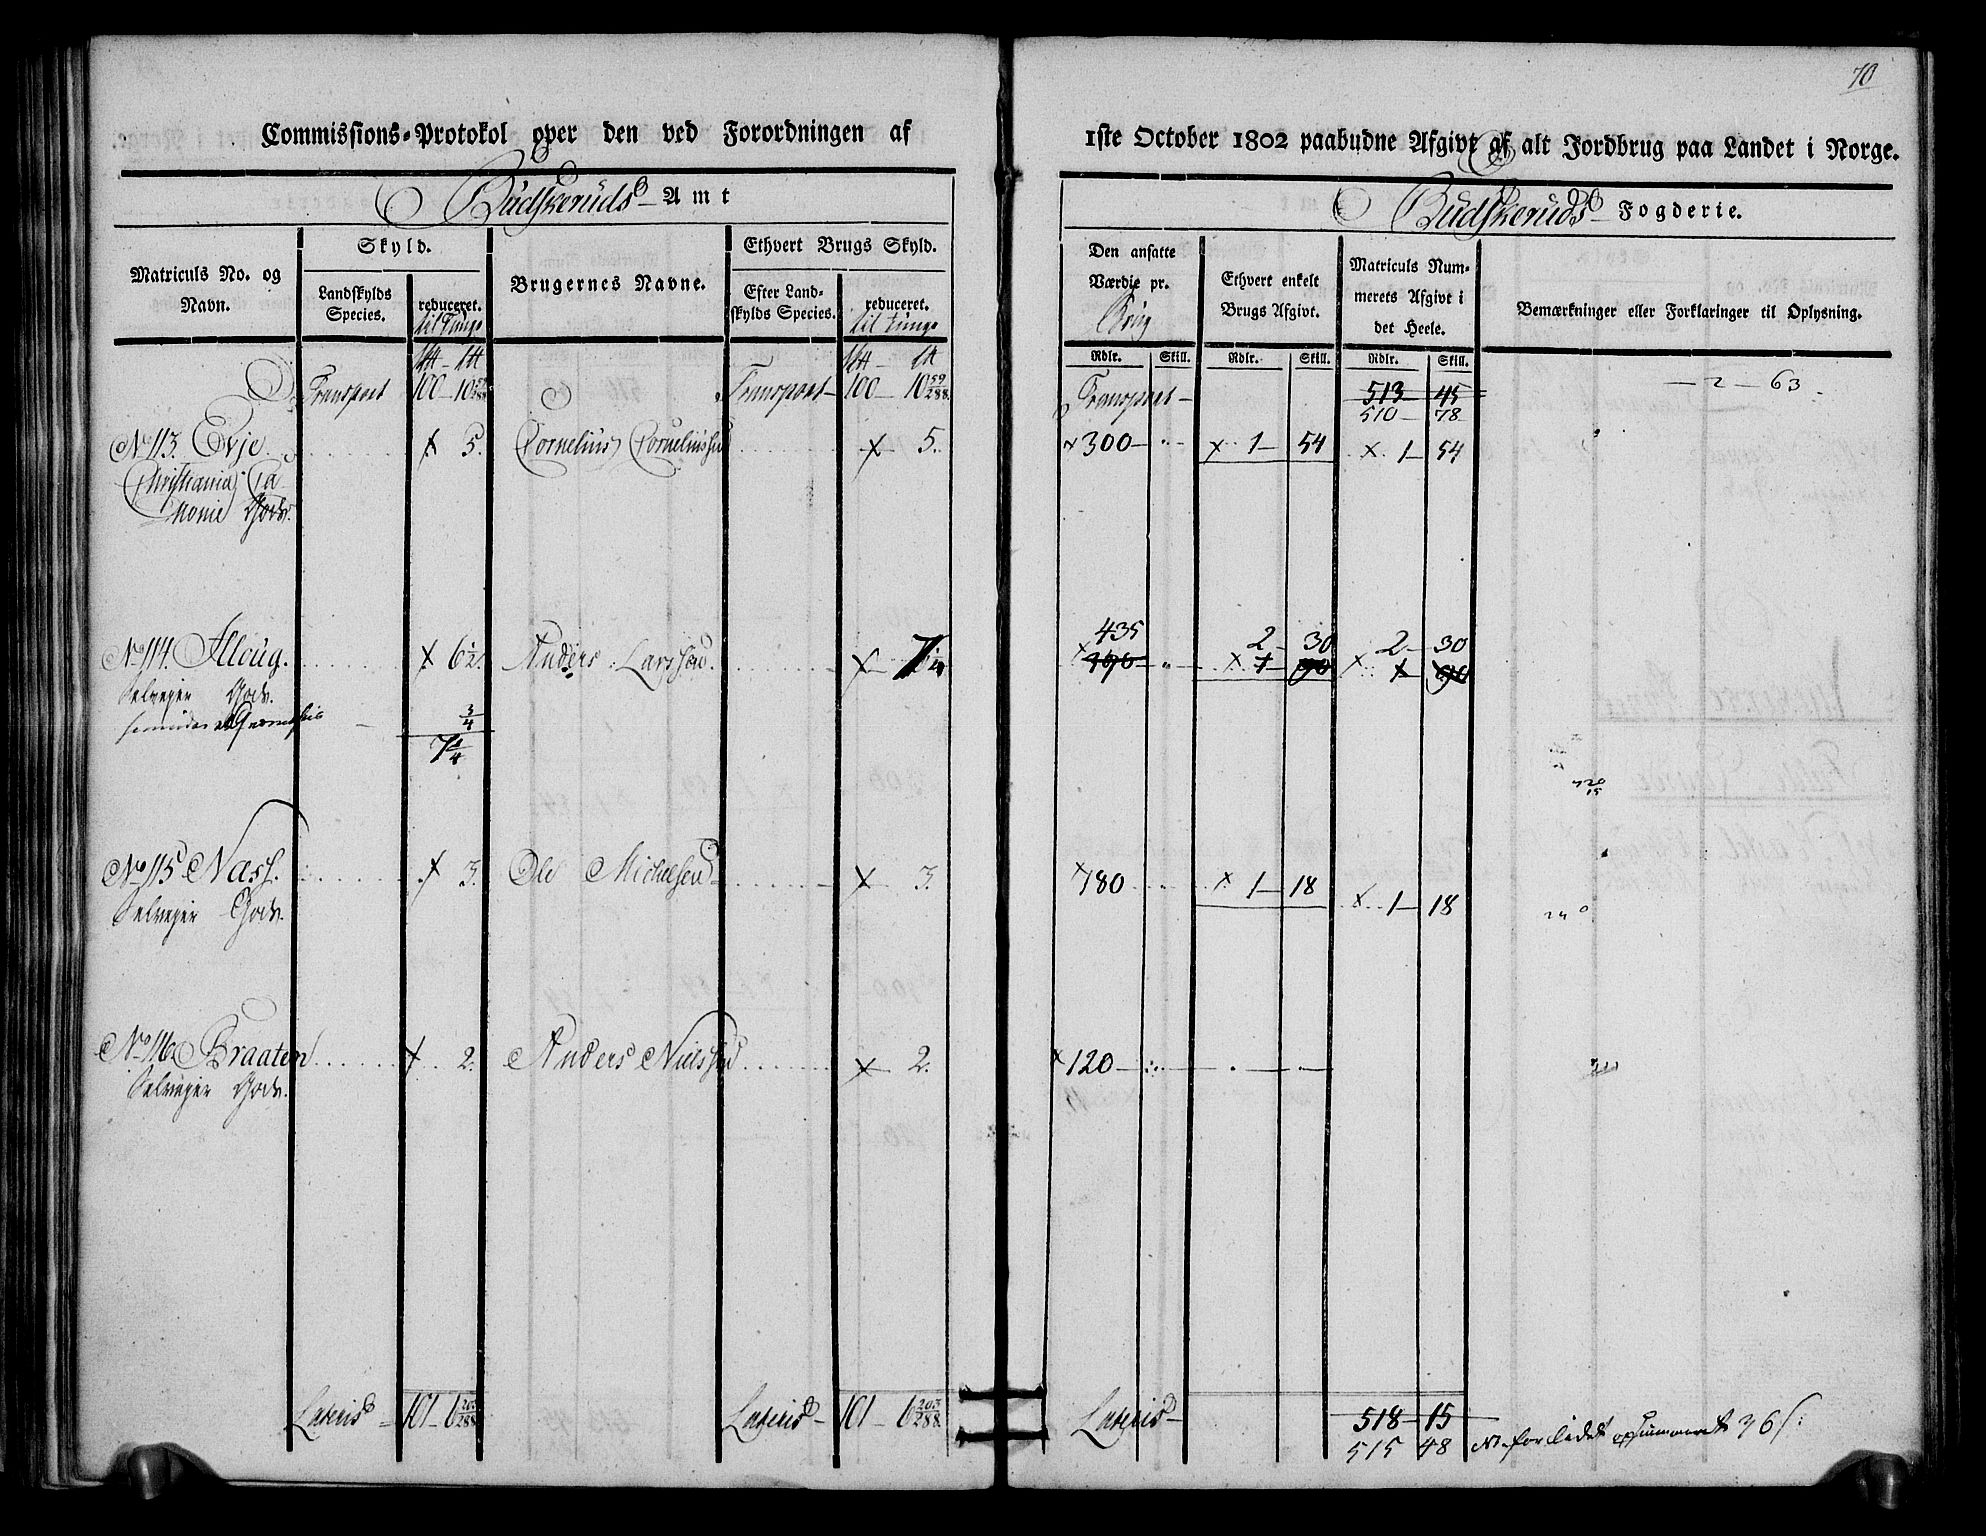 70
Commissions-Protokol over den ved Forordningen af 1ste October 1802 paabudne Afgivt af alt Jordbrug paa Landet i Norge.
Budskeruds Amt
Budskeruds Fogderie.
Matriculs No. og Navn.
Skyld.
Landskylds Species.
reduceret.
til Tunge
Brugernes Navne.
Ethvert Brugs Skyld.
Efter Landskylds Species.
reduceret.
til Tunge
Den ansatte Værdie pr.
Brug
Ethvert enkelt Brugs Afgivt.
Matriculs Nummerets Afgivt i det Heele.
Bemærkninger eller Forklaringer til Oplysning.
Rdlr. Skill. Rdlr. Skill. Rdlr. Skill.
Transport 100 – 10 59/288 Transport – 100 – 10 59/288 Transport – 513 – 45 — 2 — 63
510 – 78
No 113. Evje x 5. Cornelius Corneliussen x 5. x 300 – x 1 – 54 x 1 – 54
Christiania
Gods.
No 114. x 6 1/2. Anders Larssen x 7 1/4 435 2 – 30 2 – 30
x 190 x 1 – 90 x 1 – 90
Selveyer Gods.
3/4
7 1/4
720
15
No 115 Næss. x 3. Ole Michelsen x 3. x 180 x 1 – 18 x 1 – 18
Selveyer Gods. 240
No 116 Braaten x 2. Anders Nielssen x 2. x 120
Selveyer Gods.
Lateris – 101 – 6 203/288 Lateris – 101 – 6 203/288 Lateris – 518 – 15
515 48 for lidet opsummeret 36 s: